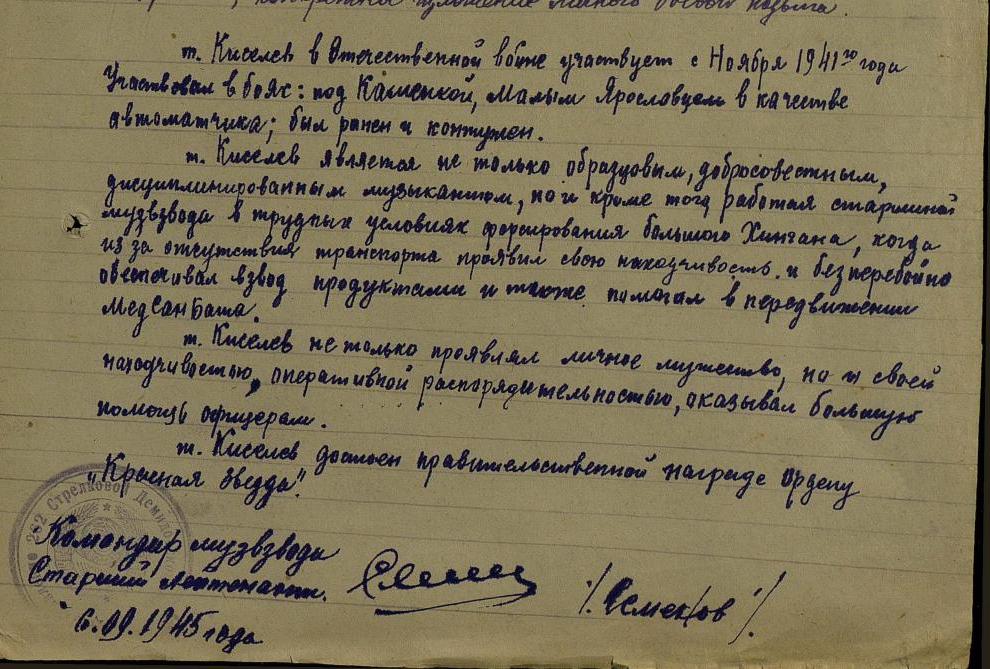 конкретное изложение личного боевого подвига.
т. Киселев в Отечественной войне участвует с Ноября 1941го года
Участвовал в боях: под Каменкой, Малым Ярославцем в качестве
автоматчика; был ранен и контужен.
т. Киселев является не только образцовым, добросовестным,
дисциплинированным музыкантом, но и кроме того работая старшиной
музвзвода в трудных условиях форсирования большого Хингана, когда
из за отсутствия транспорта проявил свою находчивость и безперебойно
обеспечивал взвод продуктами и также помогал в передвижении
МедСанБата.
т. Киселев не только проявлял личное мужество, но и своей
находчивостью, оперативной распорядительностью, оказывал большую
помощь офицерам.
т. Киселев достоен правительственной награде Ордену
„Красная Звезда".
262 Стрелковой
Командир музвзвода
Старший Лейтенант. /Семенов/.
6.09.1945 года